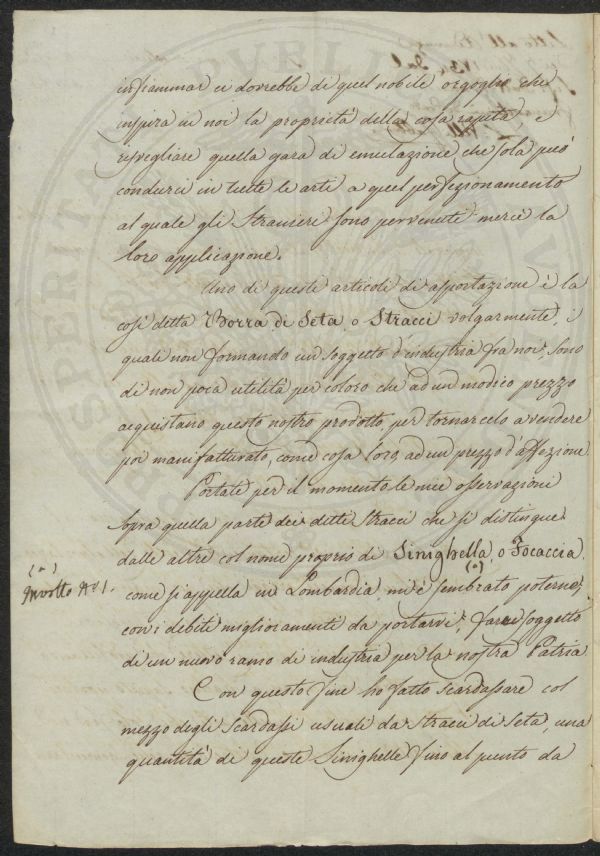 infiammar ci dovrebbe di quel nobile orgoglio che
inspira in noi la proprietà della cosa rapita, e
risvegliare quella gara di emulazione che sola può
condurci in tutte le arti a quel perfezionamento
al quale gli Stranieri sono pervenuti mercè la
loro applicazione.
Uno di questi articoli di asportazione è la
così detta Borra di Seta, o Stracci volgarmente, i
quali non formando un soggetto d'industria fra noi, sono
di non poca utilità per coloro che ad un modico prezzo
acquistano questo nostro prodotto, per tornarcelo a vendere
poi manifatturato, come cosa loro, ad un prezzo d'affezione.
Portate per il momento le mie osservazioni
sopra quella parte dei detti Stracci che si distingue
dalle altre col nome proprio di Sinighella, o Focaccia
(a)
come si appella in Lombardia, mi è sembrato poterne,
con i debiti miglioramenti da portarvi, farne soggetto
di un nuovo ramo di industria per la nostra Patria
Con questo fine ho fatto scardassare col
mezzo degli Scardassi usuali da Stracci di Seta, una
quantità di queste Sinighelle fino al punto da
(a)
Involto N.º 1.
PROSPERITAT
PVBLI